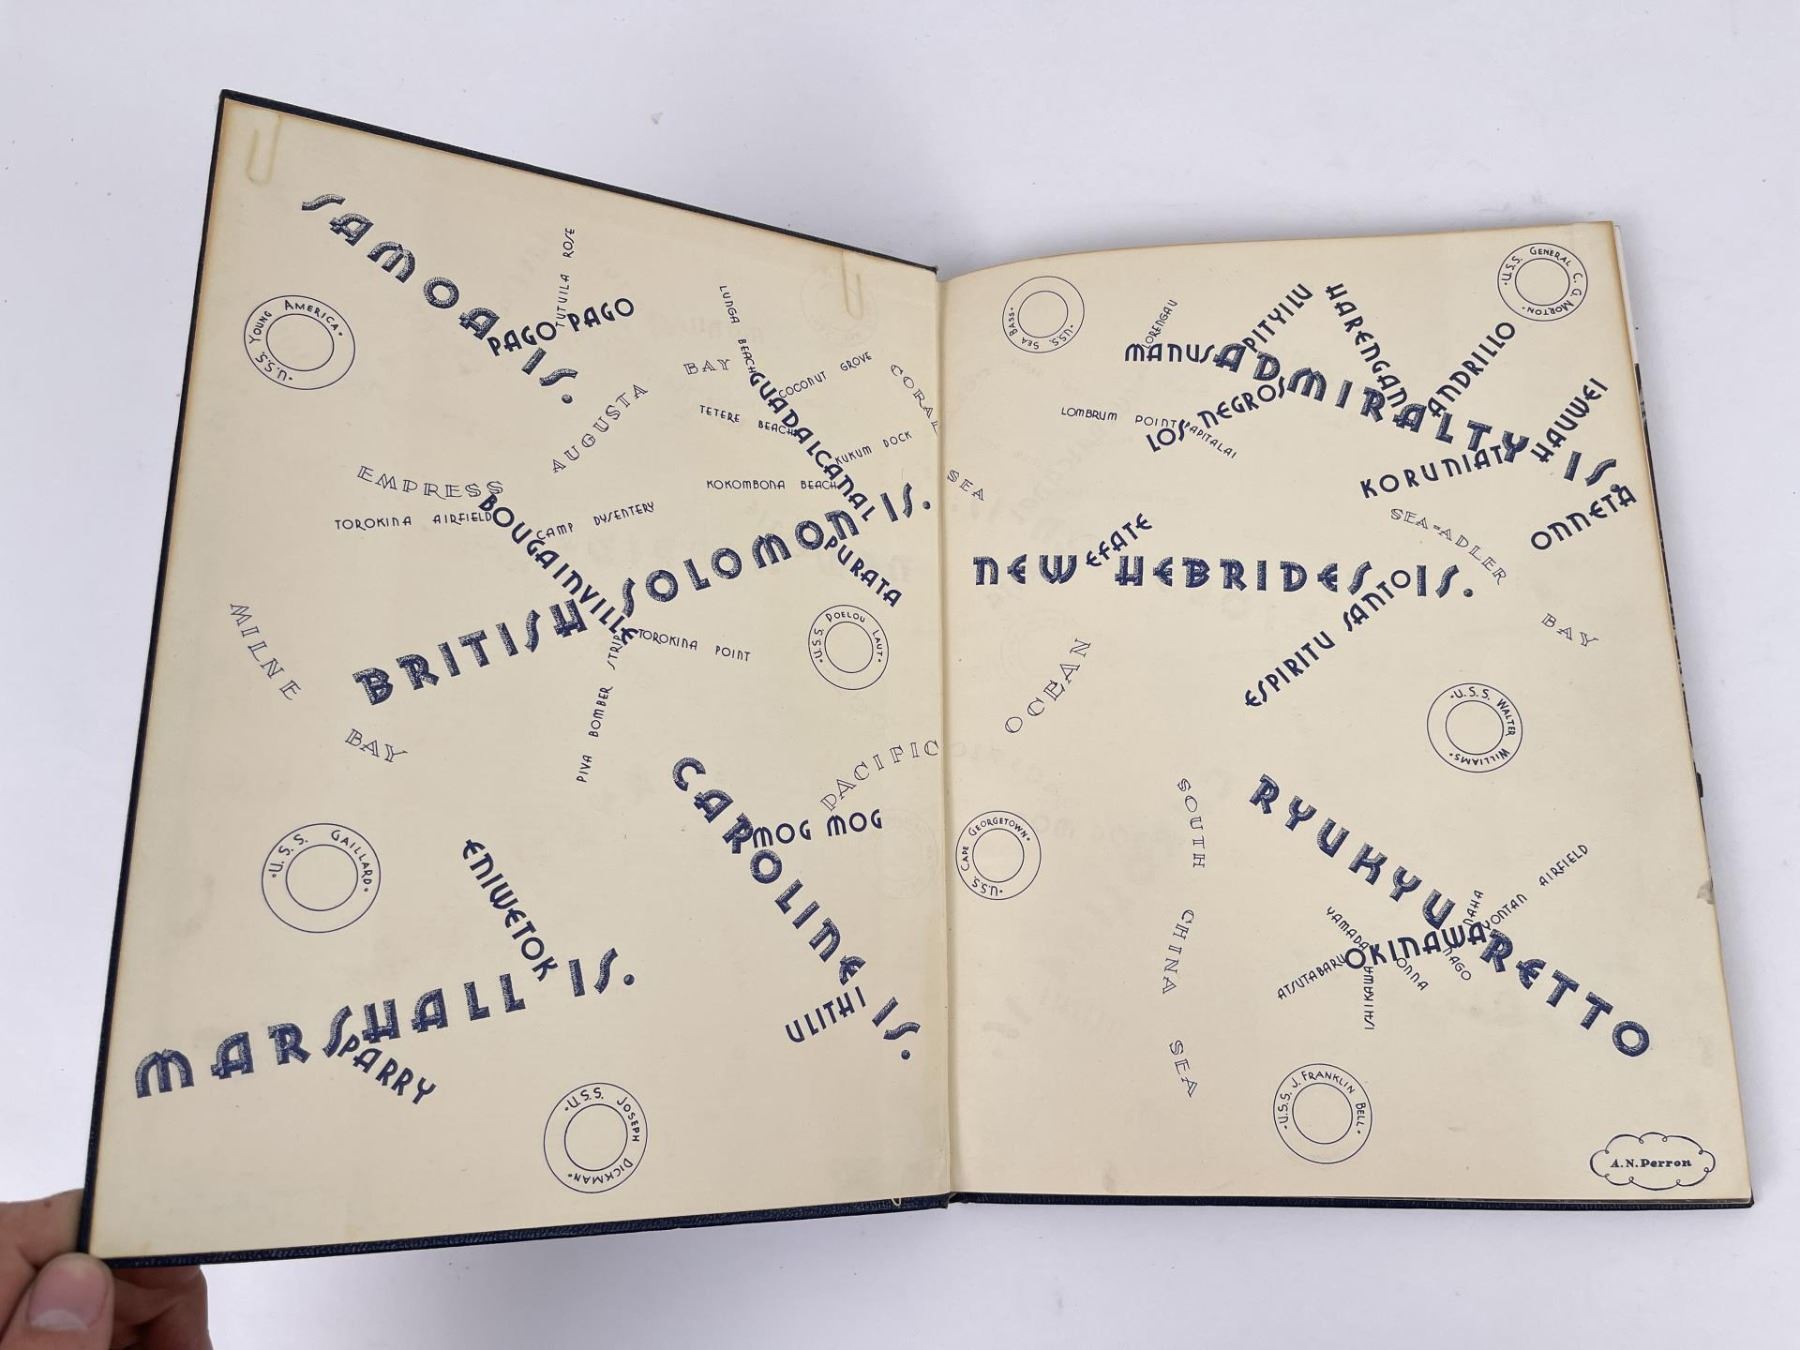 SAMOA IS.
TUTUILA ROSE
PAGO PAGO
U.S.S. YOUNG AMERICA
LUNGA BEACH
COCONUT GROVE
TETERE BEACH
GUADALCANAL
KUKUM DOCK
KOKOMBONA BEACH
EMPRESS AUGUSTA BAY
TOROKINA AIRFIELD
CAMP DYSENTERY
BOUGAINVILLE
BRITISH SOLOMON IS.
PURATA
TOROKINA POINT
PIVA BOMBER STRIP
U.S.S. DOELOU LAUT
MILNE BAY
CORAL SEA
CAROLINE IS.
MOG MOG
ULITHI
PACIFIC OCEAN
U.S.S. GAILLARD
ENIWETOK
MARSHALL IS.
PARRY
U.S.S. JOSEPH DICKMAN
U.S.S. SEA BASS
LORENGAU
MANUS
PITYILU
HARENGAN
ANDRILLO
U.S.S. GENERAL C. G. MORTON
ADMIRALTY IS.
LOMBRUM POINT
PAPITALAI
LOS NEGROS
HAUWEI
KORUNIAT
ONNETA
SEA-ADLER BAY
NEW HEBRIDES IS.
EFATE
ESPIRITU SANTO
U.S.S. WALTER WILLIAMS
U.S.S. CAPE GEORGETOWN
SOUTH CHINA SEA
RYUKYU RETTO
YONTAN AIRFIELD
NAHA
YAMADA
OKINAWA
ATSUTABARU
ISHIKAWA
ONNA
NAGO
U.S.S. J. FRANKLIN BELL
A.N. Perron